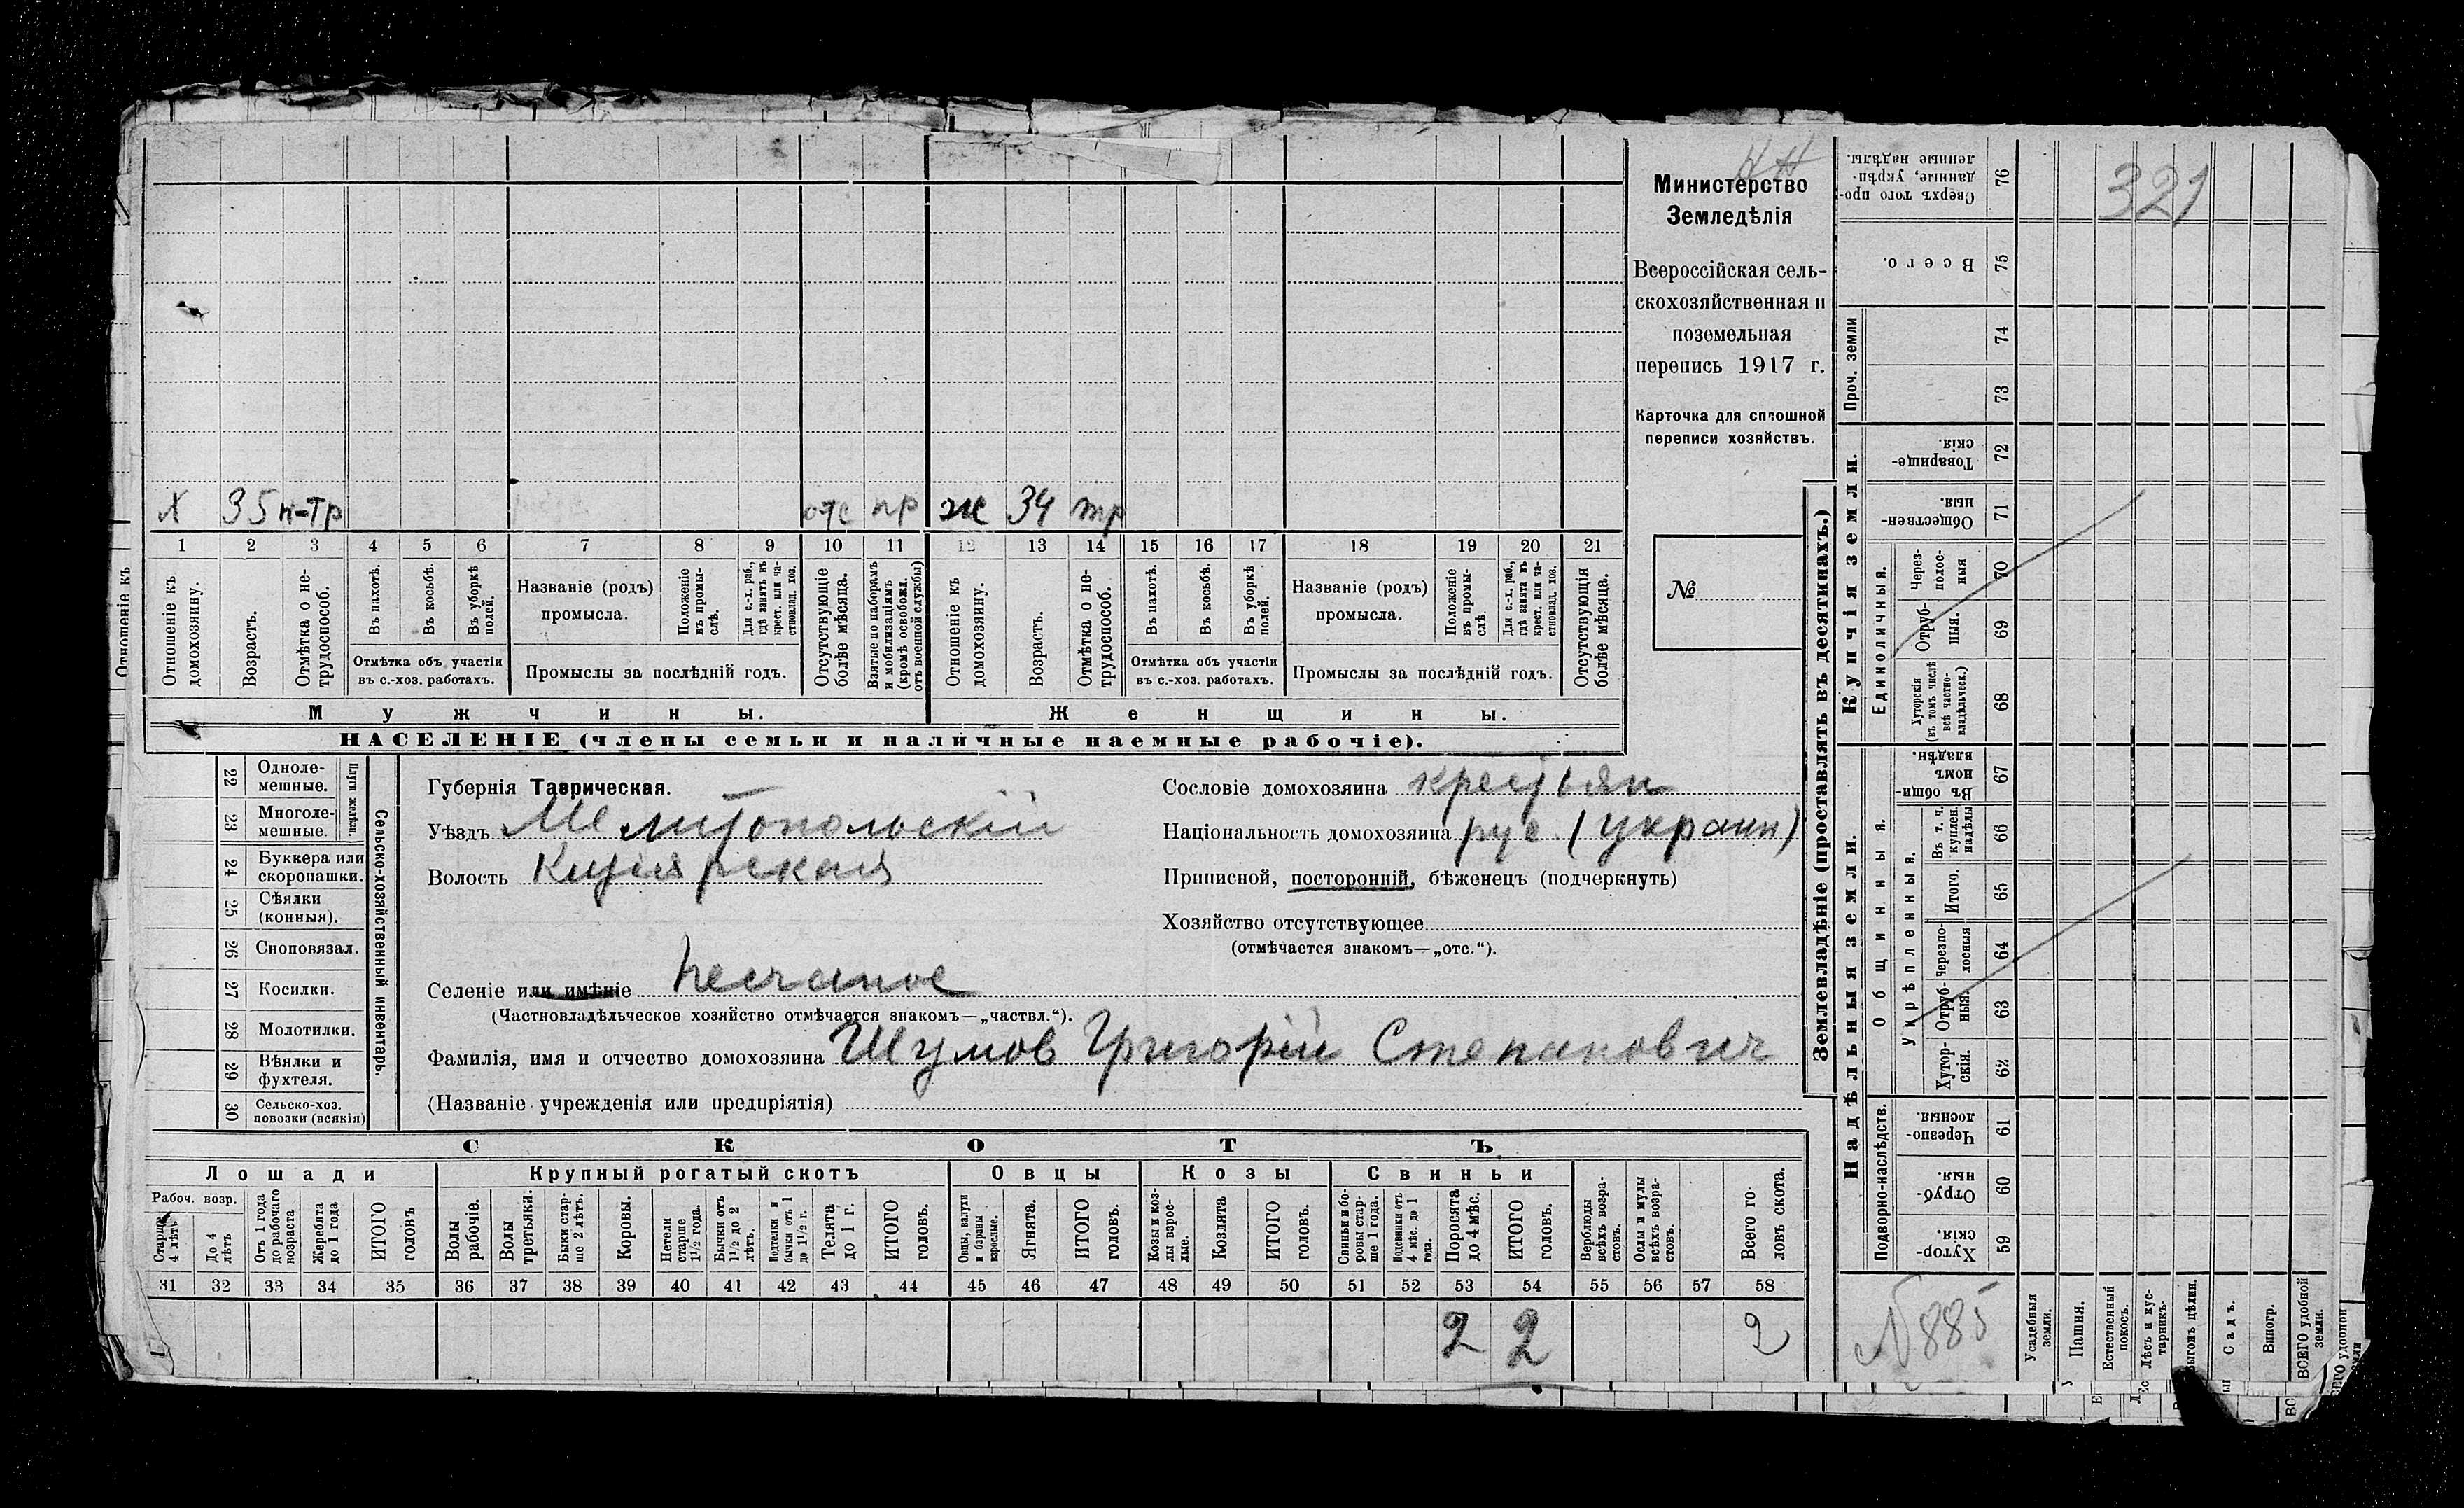 НН
Министерство
Земледѣлія
Всероссійская сель-
скохозяйственная и
поземельная
перепись 1917 г.
Карточка для сплошной
переписи хозяйствъ.
№
X 35 н-тр отс пр ж 34 тр
1 2 3 4 5 6 7 8 9 10 11 12 13 14 15 16 17 18 19 20 21
Отношеніе къ домохозяину.
Возрастъ.
Отмѣтка о не-трудоспособ.
Въ пахотѣ.
Въ косьбѣ.
Въ уборкѣ полей.
Отмѣтка объ участіи
въ с.-хоз. работахъ.
Названіе (родъ)
промысла.
Положеніе въ промы-слѣ.
Для с.-х. раб., гдѣ занятъ въ крест. или ча-стновлад. хоз.
Промыслы за послѣдній годъ.
Отсутствующіе болѣе мѣсяца.
Взятые по наборамъ и мобилизаціямъ (кромѣ освобожд. отъ военной службы)
Отношеніе къ домохозяину.
Возрастъ.
Отмѣтка о не-трудоспособ.
Въ пахотѣ.
Въ косьбѣ.
Въ уборкѣ полей.
Отмѣтка объ участіи
въ с.-хоз. работахъ.
Названіе (родъ)
промысла.
Положеніе въ промы-слѣ.
Для с.-х. раб., гдѣ занята въ крест. или ча-стновлад. хоз.
Промыслы за послѣдній годъ.
Отсутствующія болѣе мѣсяца.
Мужчины. Женщины.
НАСЕЛЕНІЕ (члены семьи и наличные наемные рабочіе).
22 Одноле-мешные.
23 Многоле-мешные.
Плуги желѣзн.
24 Буккера или скоропашки.
25 Сѣялки (конныя).
26 Сноповязал.
27 Косилки.
28 Молотилки.
29 Вѣялки и фухтеля.
30 Сельско-хоз. повозки (всякія)
Сельско-хозяйственный инвентарь.
Губернія Таврическая.
Уѣздъ Мелитопольскій
Волость
Селеніе или имѣніе Песчаное
(Частновладѣльческое хозяйство отмѣчается знакомъ—„частвл.“).
Фамилія, имя и отчество домохозяина Шумов Григорій Степанович
(Названіе учрежденія или предпріятія)
Сословіе домохозяина крестьян
Національность домохозяина рус. (украин)
Приписной, посторонній, бѣженецъ (подчеркнуть)
Хозяйство отсутствующее
(отмѣчается знакомъ—„отс.“).
СКОТЪ
Лошади Крупный рогатый скотъ Овцы Козы Свиньи
Рабоч. возр.
Старше 4 лѣтъ
До 4 лѣтъ
Отъ 1 года до рабочаго возраста
Жеребята до 1 года
ИТОГО головъ
Волы рабочіе.
Волы третьяки.
Быки стар-ше 2 лѣтъ.
Коровы.
Нетели старше 1½ года.
Бычки отъ 1½ до 2 лѣтъ.
Подтелки и бычки отъ 1 до 1½ г.
Телята до 1 г.
ИТОГО головъ.
Овцы, валухи и бараны взрослые.
Ягнята.
ИТОГО головъ.
Козы и коз-лы взрос-лые.
Козлята
ИТОГО головъ.
Свиньи и бо-ровы стар-ше 1 года.
Подсвинки отъ 4 мѣс. до 1 года.
Поросята до 4 мѣс.
ИТОГО головъ.
Верблюды всѣхъ возра-стовъ.
Ослы и мулы всѣхъ возра-стовъ.
Всего го-ловъ скота.
31 32 33 34 35 36 37 38 39 40 41 42 43 44 45 46 47 48 49 50 51 52 53 54 55 56 57 58
2 2 2
Землевладѣніе (проставлять въ десятинахъ.)
321
76 Сверхъ того про-данные, укрѣп-ленные надѣлы.
75 Всего.
Проч. земли
74
73
Купчія земли.
72 Товарище-скія.
71 Обществен-ныя.
Единоличныя.
70 Через-полос-ныя
69 Отруб-ныя.
68 Хуторскія (въ томъ числѣ всѣ частно-владѣльческ.)
Надѣльныя земли.
67 Въ общи-номъ владѣн.
Общинныя.
Укрѣпленныя.
66 Въ т. ч. куплен. надѣлы
65 Итого.
64 Черезпо-лосныя
63 Отруб-ныя.
62 Хутор-скія.
Подворно-наслѣдств.
61 Черезпо-лосныя.
60 Отруб-ныя.
59 Хутор-скія.
№ 885
Усадебныя земли.
Пашня.
Естественный покосъ.
Лѣсъ и кус-тарникъ.
Выгонъ цѣлин.
Садъ.
Виногр.
ВСЕГО удобной земли.
Отношеніе къ